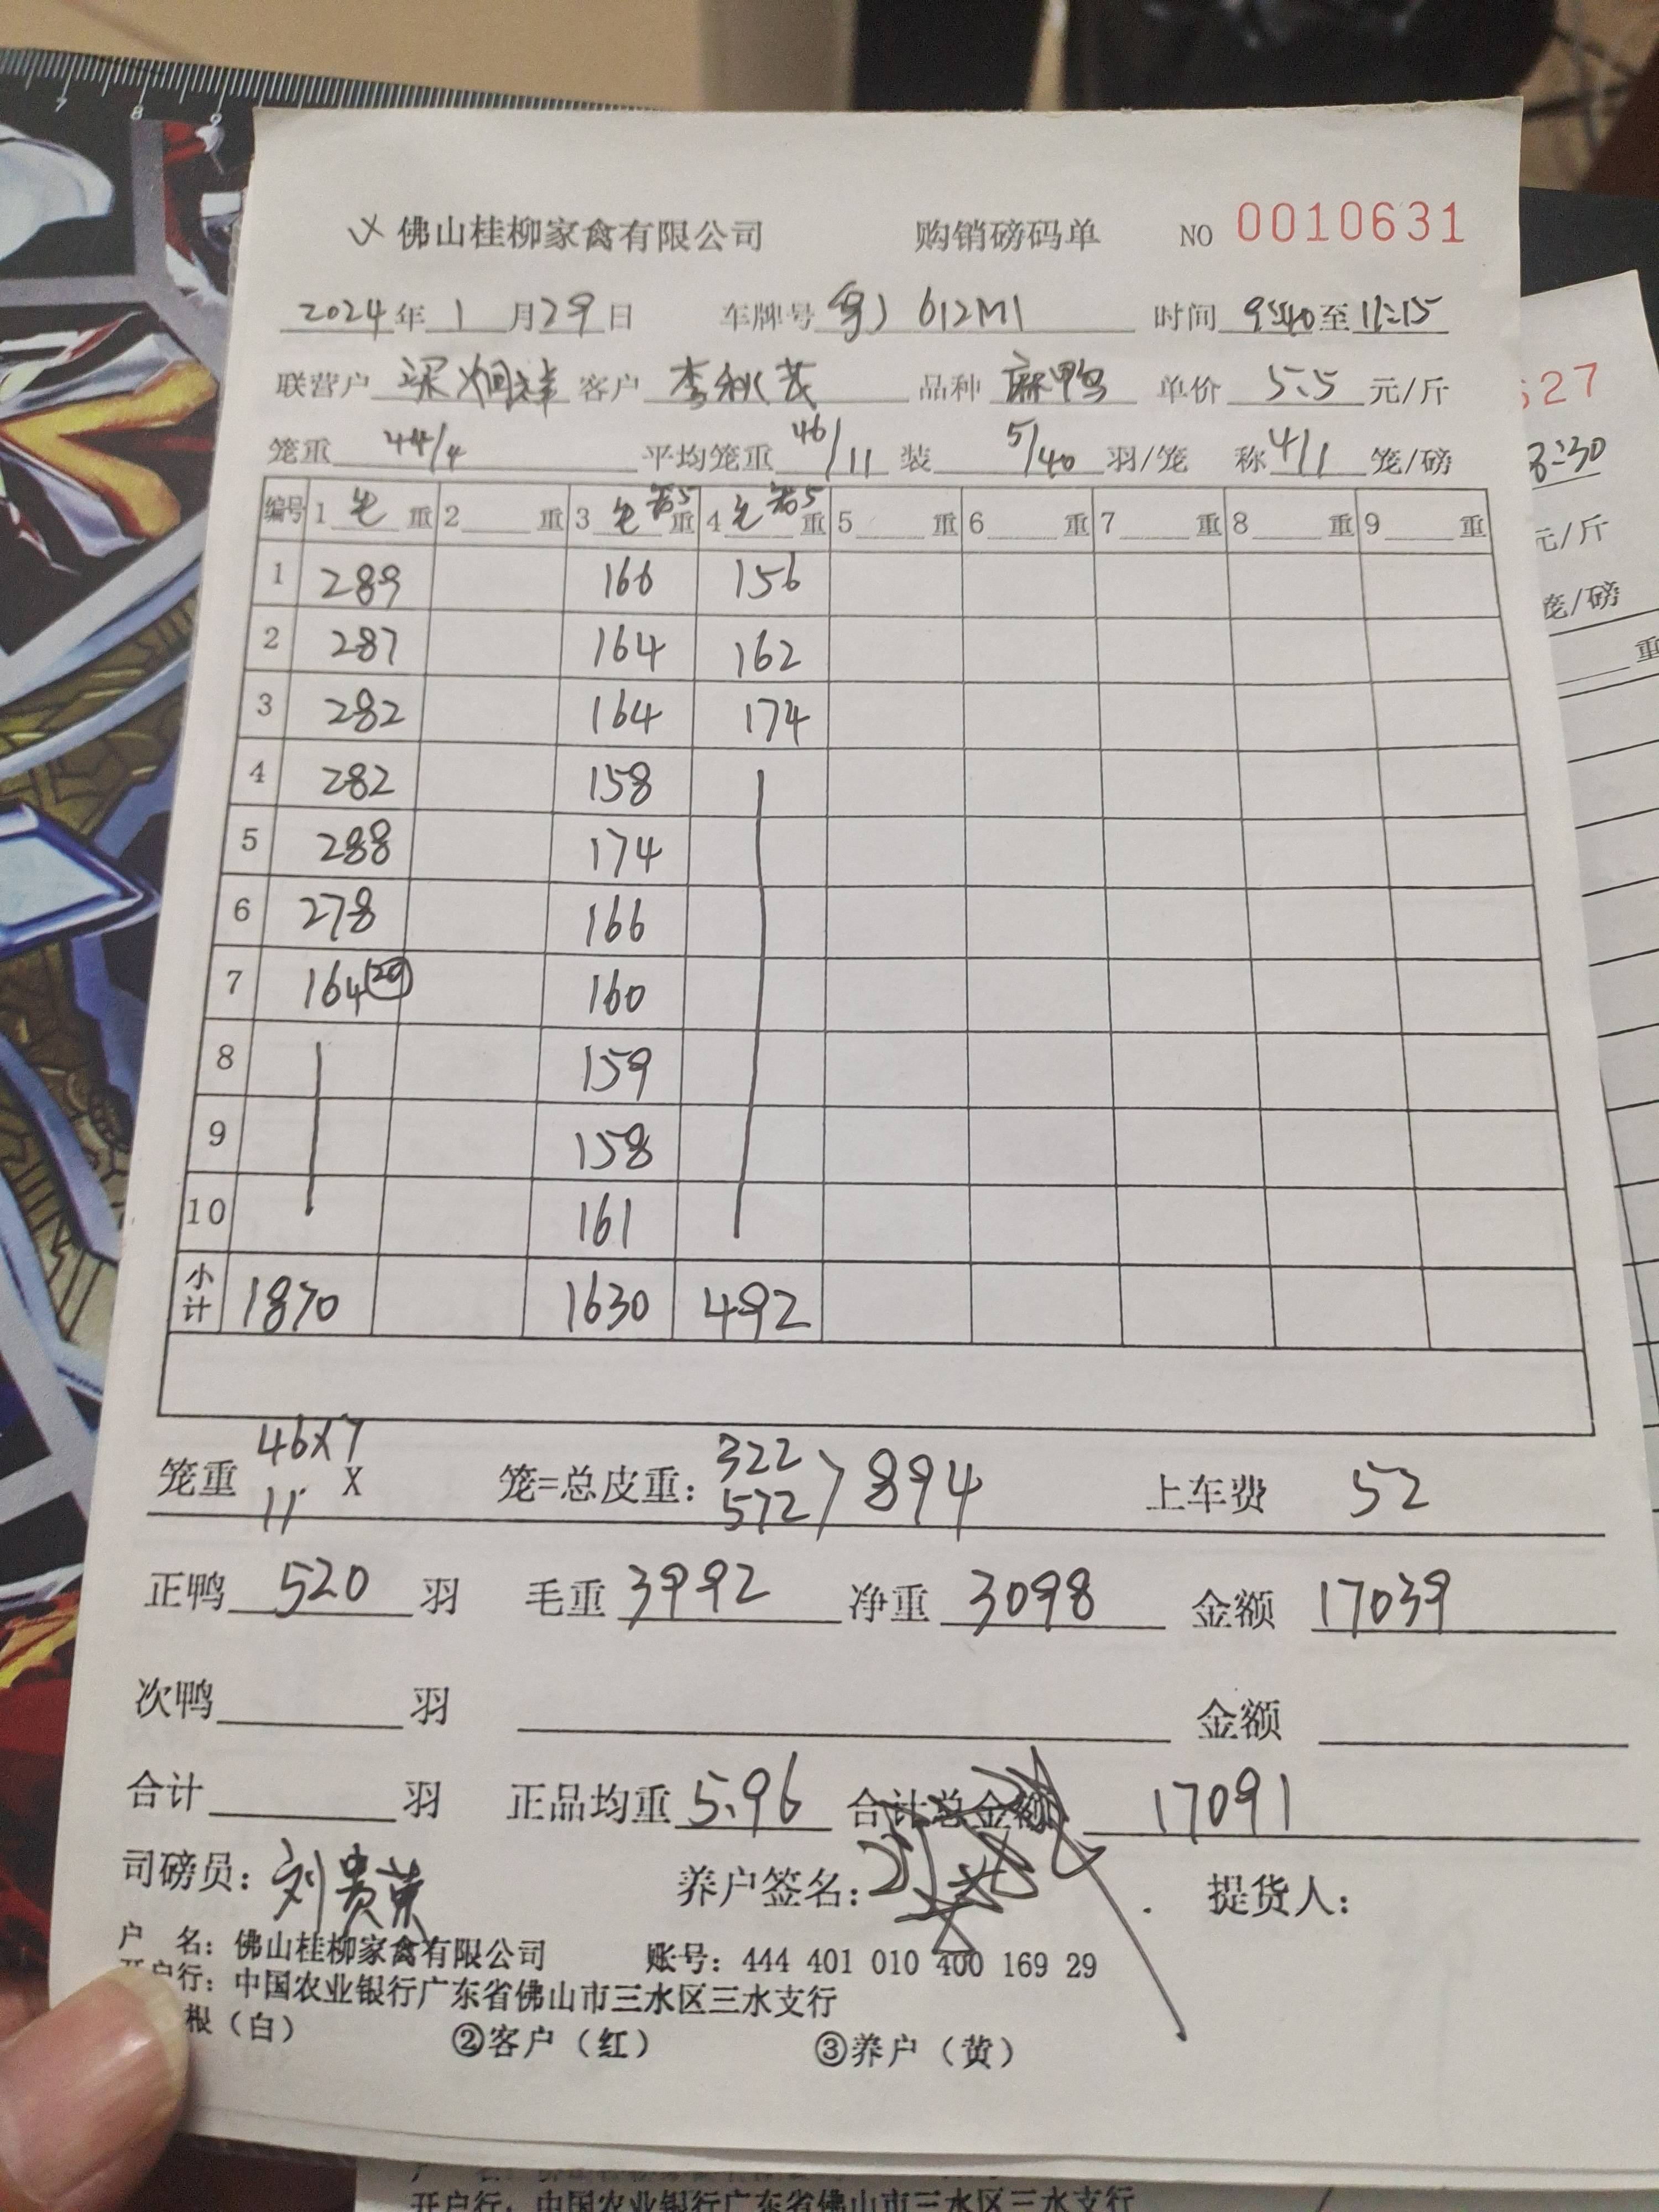 佛山桂柳家禽有限公司 购销磅码单 NO 0010631
2024年 1 月 29 日 车牌号 粤J 612M1 时间 9:40 至 11:15
联营户 客户 李秋茂 品种 麻鸭 单价 5.5 元/斤
笼重 44/4 平均笼重 46/11 装 5/40 羽/笼 称 4/1 笼/磅
编号 1 毛 重 2 重 3 毛 重 4 毛 重 5 重 6 重 7 重 8 重 9 重
1 289 166 156
2 287 164 162
3 282 164 174
4 282 158
5 288 174
6 278 166
7 164 (20) 160
8 159
9 158
10 161
小计 1870 1630 492
笼重 46X7 11 X 笼=总皮重: 322 572 > 894 上车费 52
正鸭 520 羽 毛重 3992 净重 3098 金额 17039
次鸭 羽 金额
合计 羽 正品均重 5.96 合计总金额 17091
司磅员: 刘贵荣 养户签名: 提货人:
户 名: 佛山桂柳家禽有限公司 账号: 444 401 010 400 169 29
开户行: 中国农业银行广东省佛山市三水区三水支行
根(白) ②客户(红) ③养户(黄)
627
3:30
元/斤
笼/磅
重
开户行: 中国农业银行广东省佛山市三水区三水支行
7 8 9